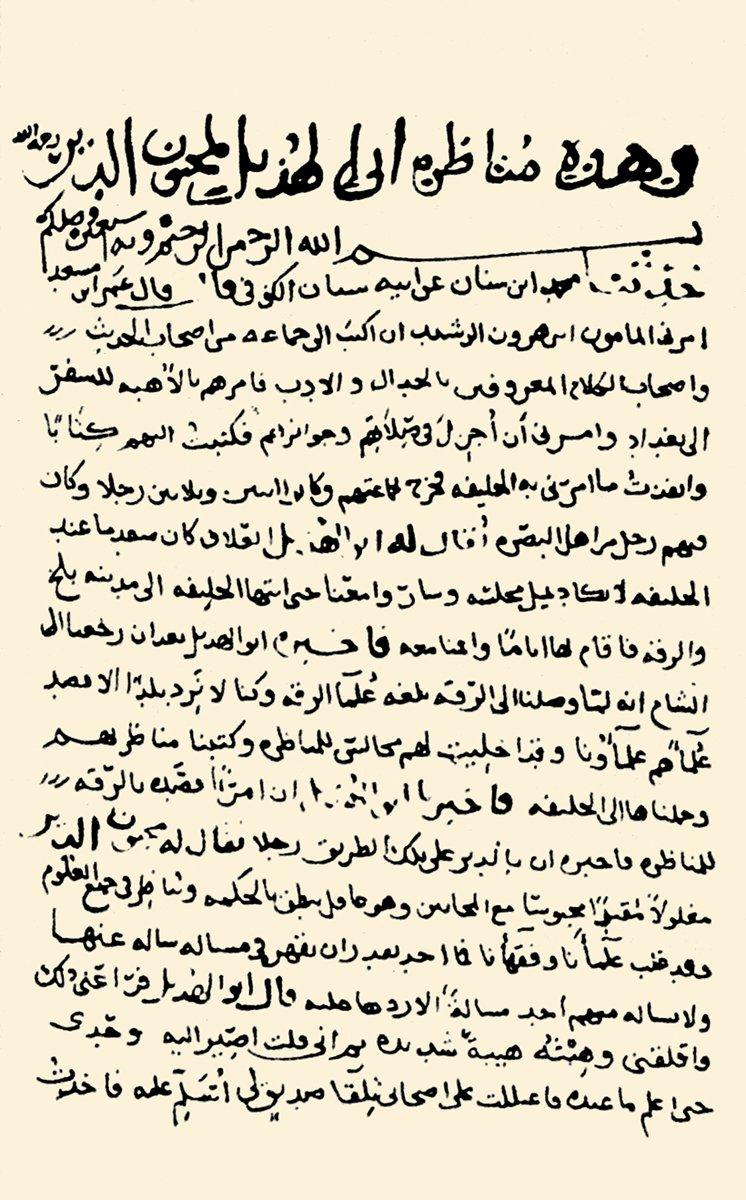 وهذه مناظرة ابي الهذيل لمجنون الدير رحمه الله
بسم الله الرحمن الرحيم وبه نستعين
حدثنا محمد ابن سنان عن ابيه سنان الكوفي قال عمر ابن مسعد
امرني المامون ابن هرون الرشيد ان اكتب الى جماعه من اصحاب الحديث
واصحاب الكلام المعروفين بالجدال والادب فامرهم بالأهبه للسفر
الى بغداد وامرني أن أجزل في صلاتهم وجوائزهم فكتبت اليهم كتابًا
وانفذت ما امرني به الخليفه فخرج جماعتهم وكانوا اثنين وثلاثين رجلا وكان
فيهم رجل من اهل البصره يقال له ابو الهذيل العلاف كان سعد ما عند
الخليفه لا يكاد يمل مجلسه وسار وامعنا حتى انتها الخليفه الى مدينه بلخ
والرقه فاقام لها اياما واقمنا معه فاخبرني ابو الهذيل بعد ان رجع الى
الشام انه لما وصلنا الى الرقه بلغه علمآ الرقه وكنا لا نرد بلدًا الا قصد
علمآهم علمآونا وقد اخليت لهم مجالس للمناظره وكتبنا مناظرتهم
وحملناها الى الخليفه فاخبرنا ابو الهذيل ان امرًا قصده بالرقه
للمناظره فاخبره ان بالدير على تلك الطريق رجلا يقال له مجنون الدير
مغلولاً مقيدًا محبوسًا مع المجانين وهو عاقل ينطق بالحكمه ويناظر في جميع العلوم
وقد تعب علمآنا وفقهأنا فما احد يقدر ان يقهره في مساله ساله عنها
ولا يساله منهم احد مسالةً الا ردها عليه قال ابو الهذيل فزاغني ذلك
واقلقني وهبته هيبةً شديده ثم اني قلت اصير اليه وحدى
حتى اعلم ما عنده فاعتللت على اصحابي بلقا صديق لي أتسلم عليه فاخذت